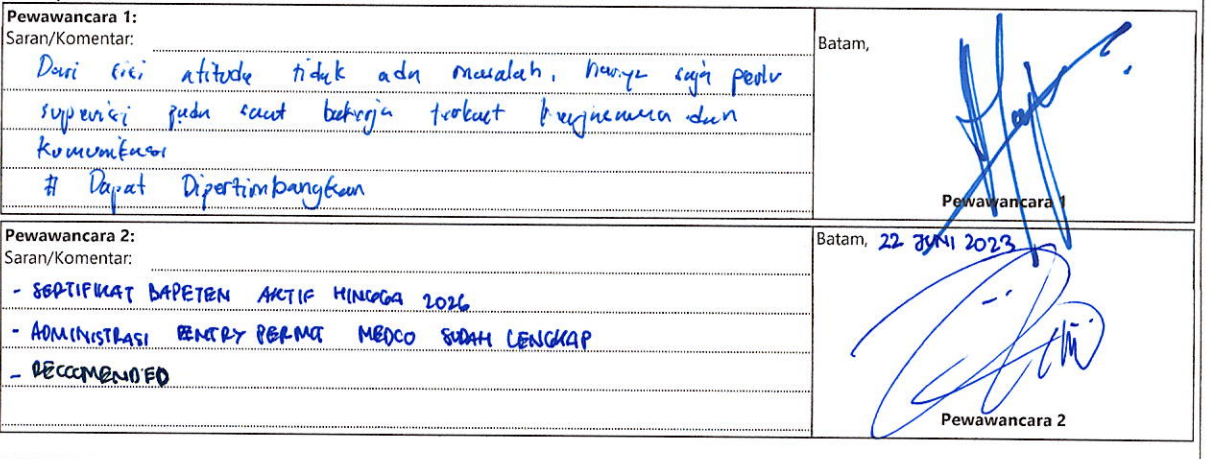 Pewawancara 1:
Saran/Komentar:
Batam,
Dari sisi atitude tidak ada masalah, hanya saja perlu
supervisi pada saat bekerja terkait dan
Komunikasi
# Dapat Dipertimbangkan
Pewawancara 1
Pewawancara 2:
Saran/Komentar:
Batam, 22 JUNI 2023
- SERTIFIKAT BAPETEN AKTIF HINGGA 2026
- ADMINISTRASI ENTRY PERMIT MEDCO SUDAH LENGKAP
- RECCOMENDED
Pewawancara 2